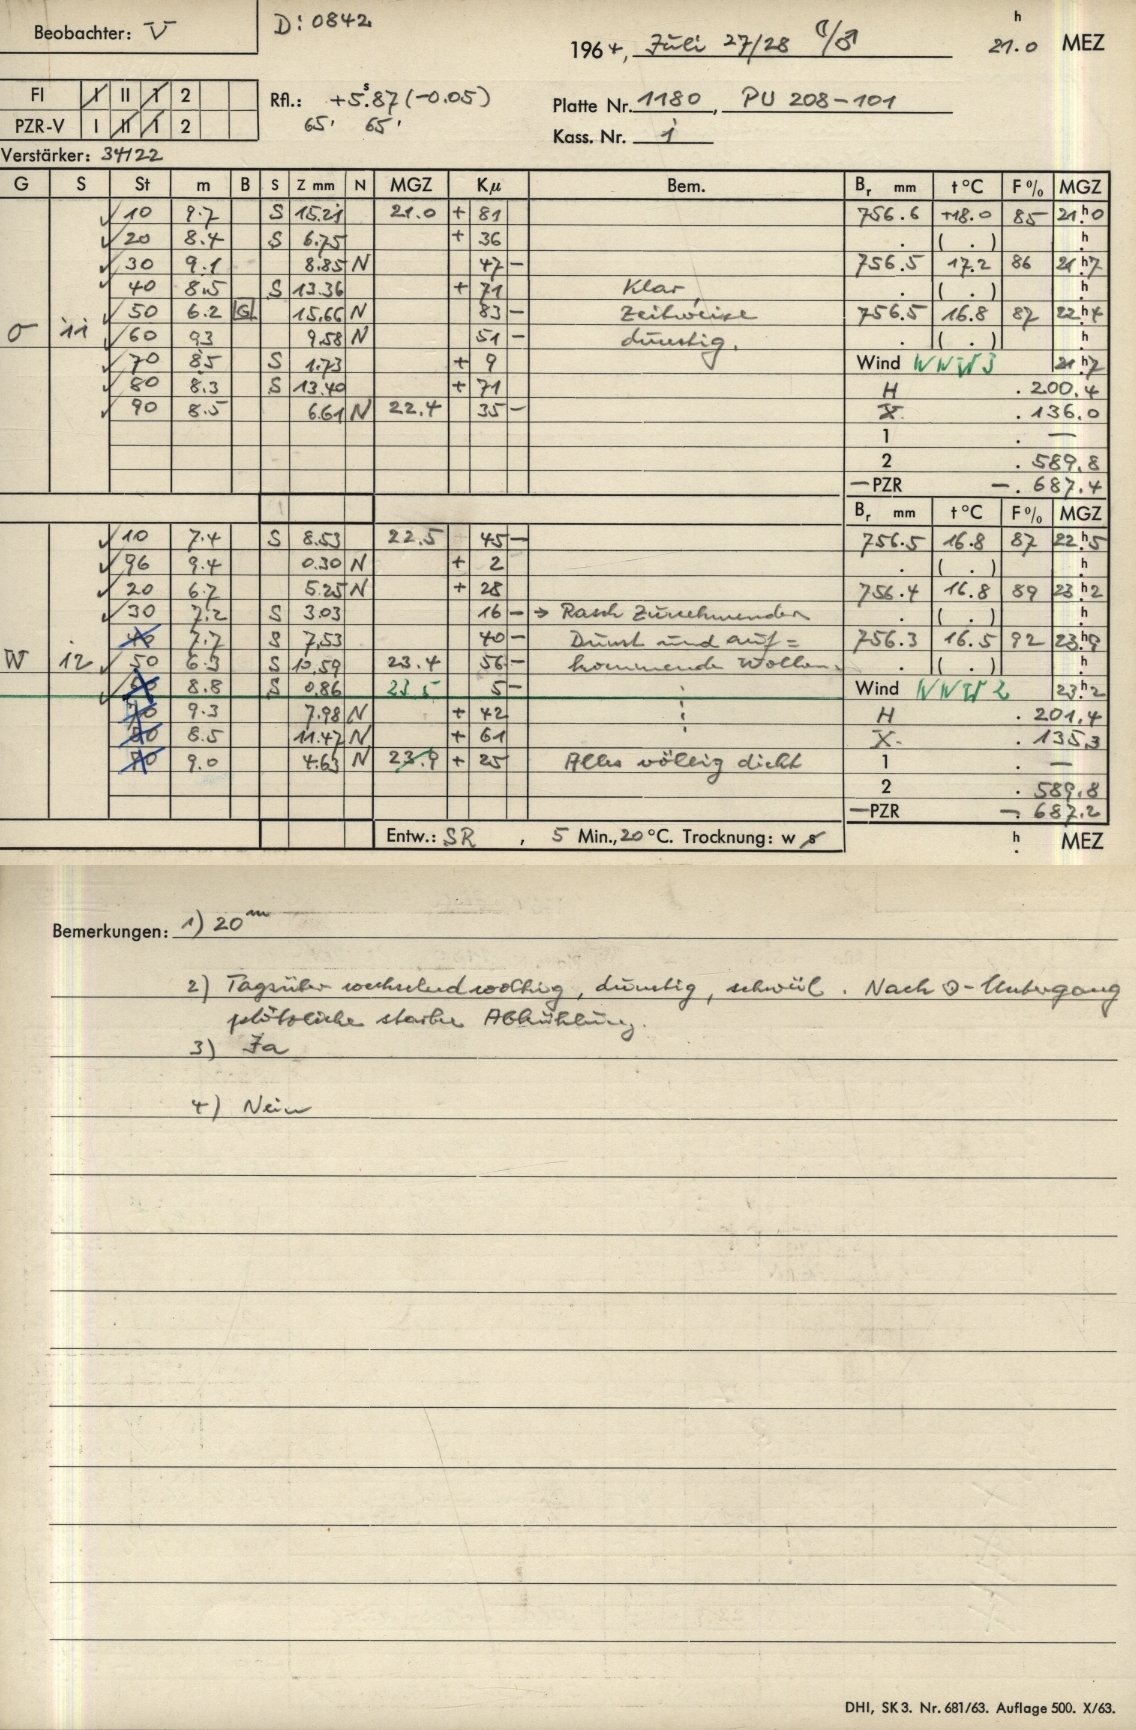 Beobachter: V
D: 0842
1964, Juli 27/28 ☾/♂ 21.0 h MEZ
FI I II 1 2
PZR-V I II 1 2
Rfl.: +5.87 s (-0.05)
65' 65'
Platte Nr. 1180, PU 208-101
Kass. Nr. i
Verstärker: 34122
G S St m B S Z mm N MGZ Kμ Bem. Br mm t °C F % MGZ
✓ 10 9.7 S 15.21 21.0 + 81 756.6 +18.0 85 21h0
✓ 20 8.4 S 6.75 + 36 . ( . ) h
✓ 30 9.1 8.85 N 47 - 756.5 17.2 86 21h7
✓ 40 8.5 S 13.36 + 71 Klar, . ( . ) h
✓ 50 6.2 G 15.66 N 83 - Zeitweise 756.5 16.8 87 22h4
σ ii ✓ 60 9.3 9.58 N 51 - dunstig. . ( . ) h
✓ 70 8.5 S 1.73 + 9 Wind WNW 3 21h7
✓ 80 8.3 S 13.40 + 71 H . 200.4
✓ 90 8.5 6.61 N 22.4 35 - X . 136.0
1 . —
2 . 589.8
— PZR — . 687.4
Br mm t °C F % MGZ
✓ 10 7.4 S 8.53 22.5 45 - 756.5 16.8 87 22h5
✓ 96 9.4 0.30 N + 2 . ( . ) h
✓ 20 6.7 5.25 N + 28 756.4 16.8 89 23h2
✓ 30 7.2 S 3.03 16 - → Rasch zunehmender . ( . ) h
40 7.7 S 7.53 40 - Dunst und auf= 756.3 16.5 92 23h9
W i2 ✓ 50 6.3 S 10.59 23.4 56 - kommende Wolken. . ( . ) h
✓ 60 8.8 S 0.86 23.5 5 - Wind WNW 2 23h2
70 9.3 7.98 N + 42 H . 201.4
80 8.5 11.47 N + 61 X . 135.3
90 9.0 4.63 N 23.9 + 25 Alles völlig dicht 1 . —
2 . 589.8
— PZR — . 687.2
Entw.: SR , 5 Min., 20 °C. Trocknung: w s h . MEZ
Bemerkungen: 1) 20 m
2) Tagsüber wechselnd wolkig, dunstig, schwül. Nach ☉-Untergang
plötzliche starke Abkühlung.
3) Ja
4) Nein
DHI, SK 3. Nr. 681/63. Auflage 500. X/63.